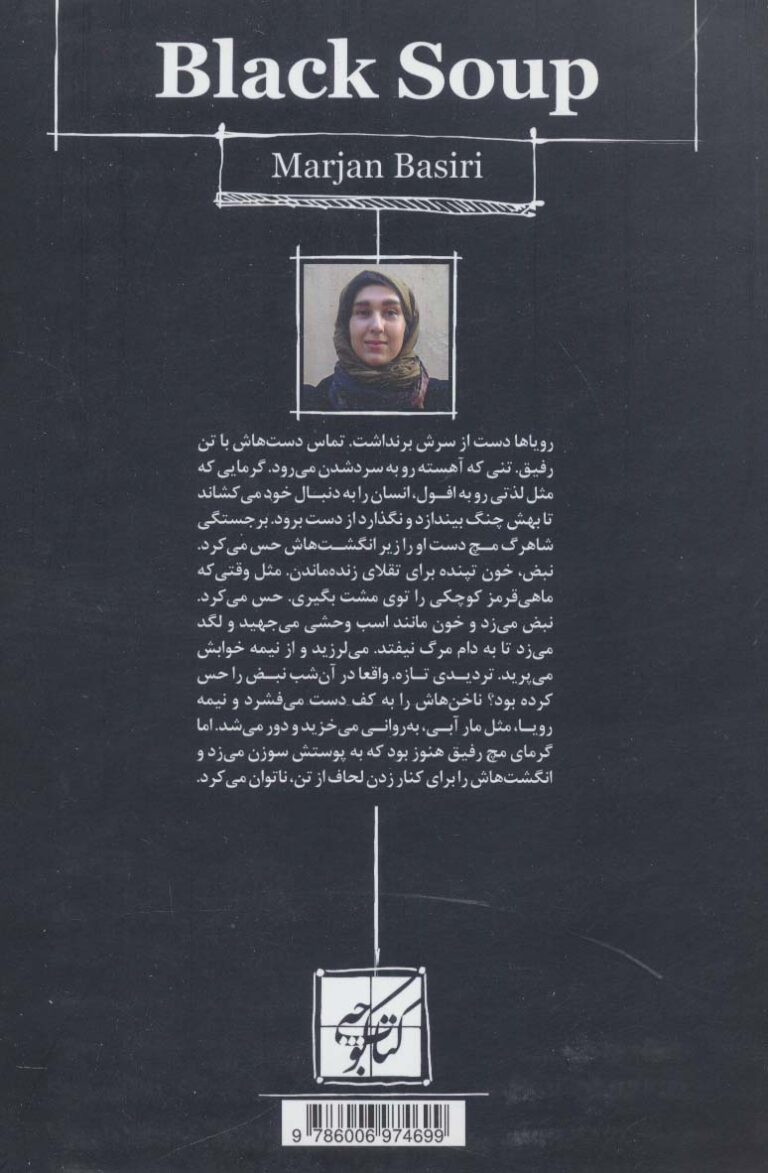 Black Soup
Marjan Basiri
رویاها دست از سرش برنداشت. تماس دست‌هاش با تن
رفیق. تنی که آهسته رو به سردشدن می‌رود. گرمایی که
مثل لذتی رو به افـول، انسان را به دنبـال خود می‌کشاند
تا بهش چنگ بیندازد و نگذارد از دست برود. برجستگی
شاهرگ مـچ دست او را زیر انگشـت‌هاش حس می‌کرد.
نبض، خون تپنده برای تقلای زنده‌ماندن. مثل وقتی‌که
ماهی‌قرمز کوچکی را توی مشت بگیری. حس می‌کرد.
نبض می‌زد و خون مانند اسب وحشی می‌جهید و لگد
می‌زد تا به دام مرگ نیفتد. می‌لرزید و از نیمه خوابش
می‌پرید. تردیـدی تازه. واقعا در آن‌شب نبـض را حس
کرده بود؟ ناخن‌هاش را به کف دست می‌فشرد و نیمه
رویـا، مثل مار آبـی، به‌روانـی می‌خزید و دور می‌شد. اما
گرمای مچ رفیق هنوز بود که به پوستش سوزن می‌زد و
انگشت‌هاش را برای کنار زدن لحاف از تن، ناتوان می‌کرد.
کتاب کوچه
9 786006 974699